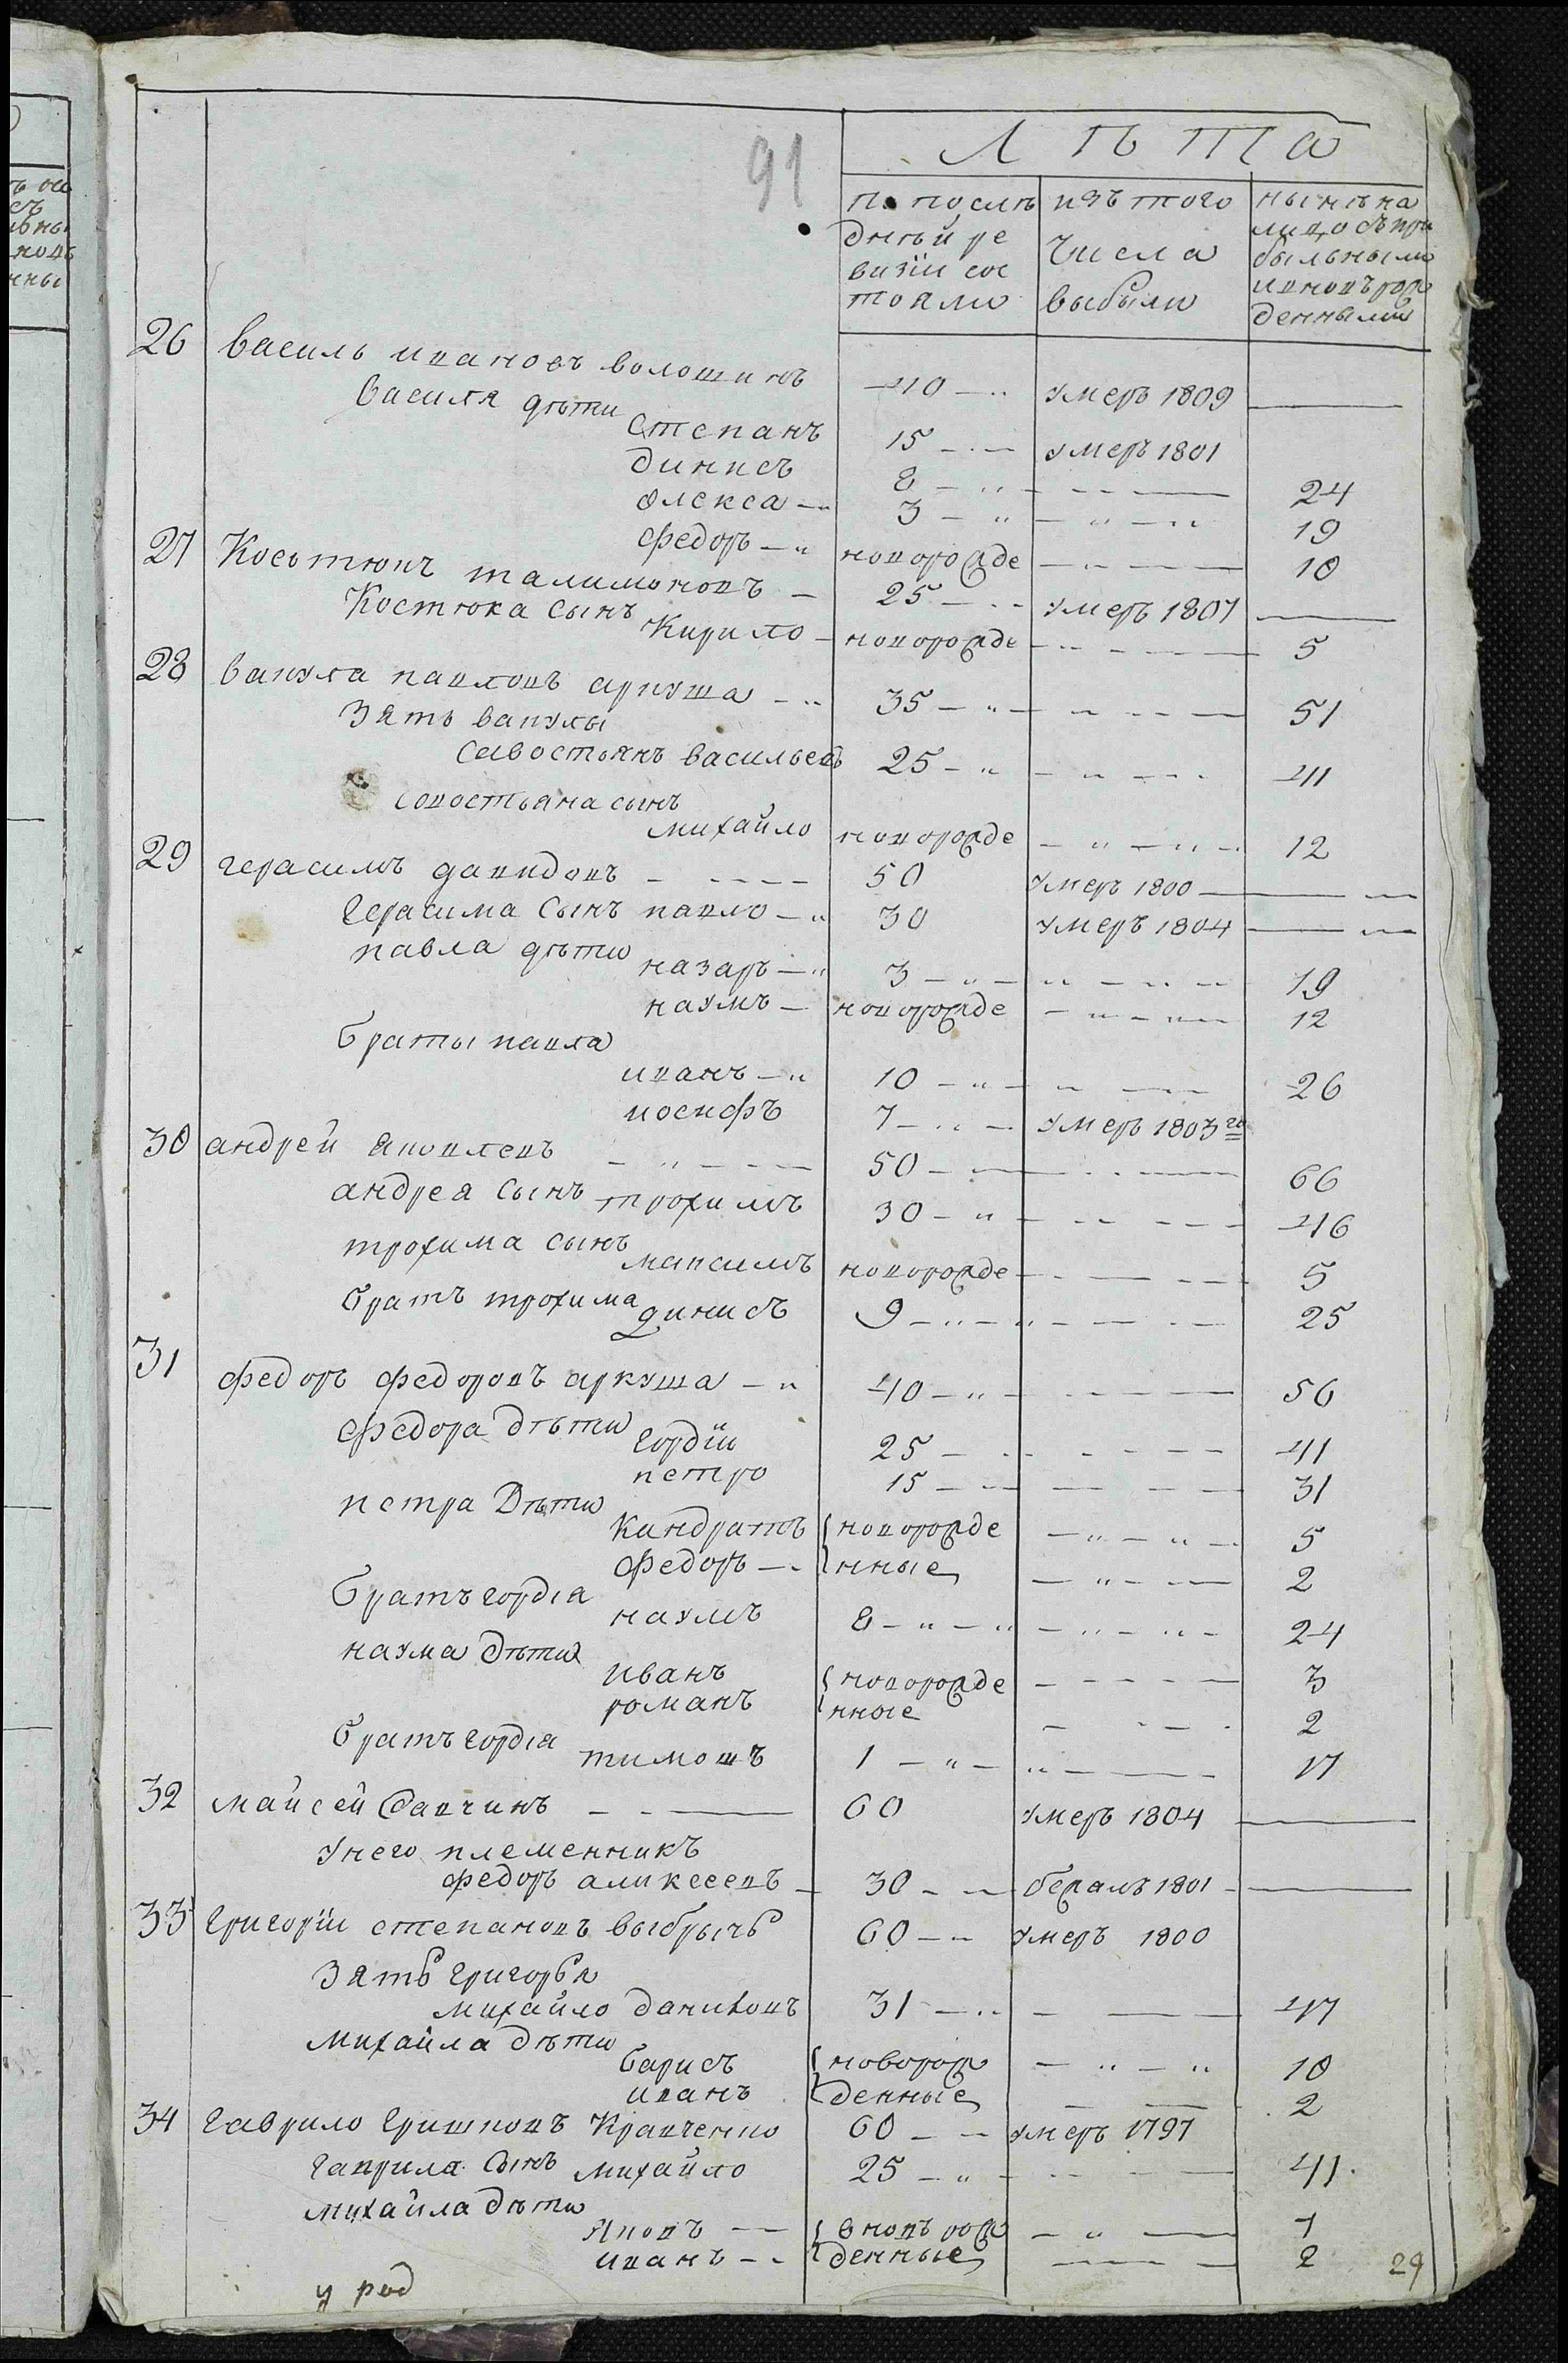 91
Лѣта
по послѣ дней ре визіи сос тояли
изъ того числа выбыли
нынѣ на лицо съ при быльными и вновь рож денными
26 василь ивановъ волошинъ 40 умеръ 1809
василя дѣти
степанъ 15 умеръ 1801
динисъ 8 24
олекса 3 19
федоръ новорожде 10
27 Косьтюкъ талимоновъ 25 умеръ 1807
Костюка сынъ
Кирило новорожде 5
28 вакула павловъ аркуша 35 51
зять вакулы
савостьянъ васильевъ 25 41
совостьяна сынъ
михайло новорожде 12
29 герасимъ давидовъ 50 умеръ 1800
герасима сынъ павло 30 умеръ 1804
павла дѣти
назаръ 3 19
наумъ новорожде 12
браты павла
иванъ 10 26
иосифъ 7 умеръ 1803го
30 андрей яковлевъ 50 66
андрея сынъ трохимъ 30 46
трохима сынъ
максимъ новорожде 5
братъ трохима динисъ 9 25
31 федоръ федоровъ аркуша 40 56
федора дѣти
гордій 25 41
петро 15 31
петра дѣти
кандратъ новорожде 5
федоръ нные 2
братъ гордія
наумъ 8 24
наума дѣти
иванъ новорожде 3
романъ нные 2
братъ гордія
тимошъ 1 17
32 майсей савчинъ 60 умеръ 1804
у него племенникъ
федоръ аликсеевъ 30 бежалъ 1801
33 григорій степановъ выбрычь 60 умеръ 1800
зять григорья
михайло даниловъ 31 47
михайла дѣти
барисъ новорож 10
иванъ денные 2
34 гаврило гришковъ кравченко 60 умеръ 1797
гаврила сынъ михайло 25 41
михайла дѣти
яковъ вновь рож 7
иванъ денные 2
29